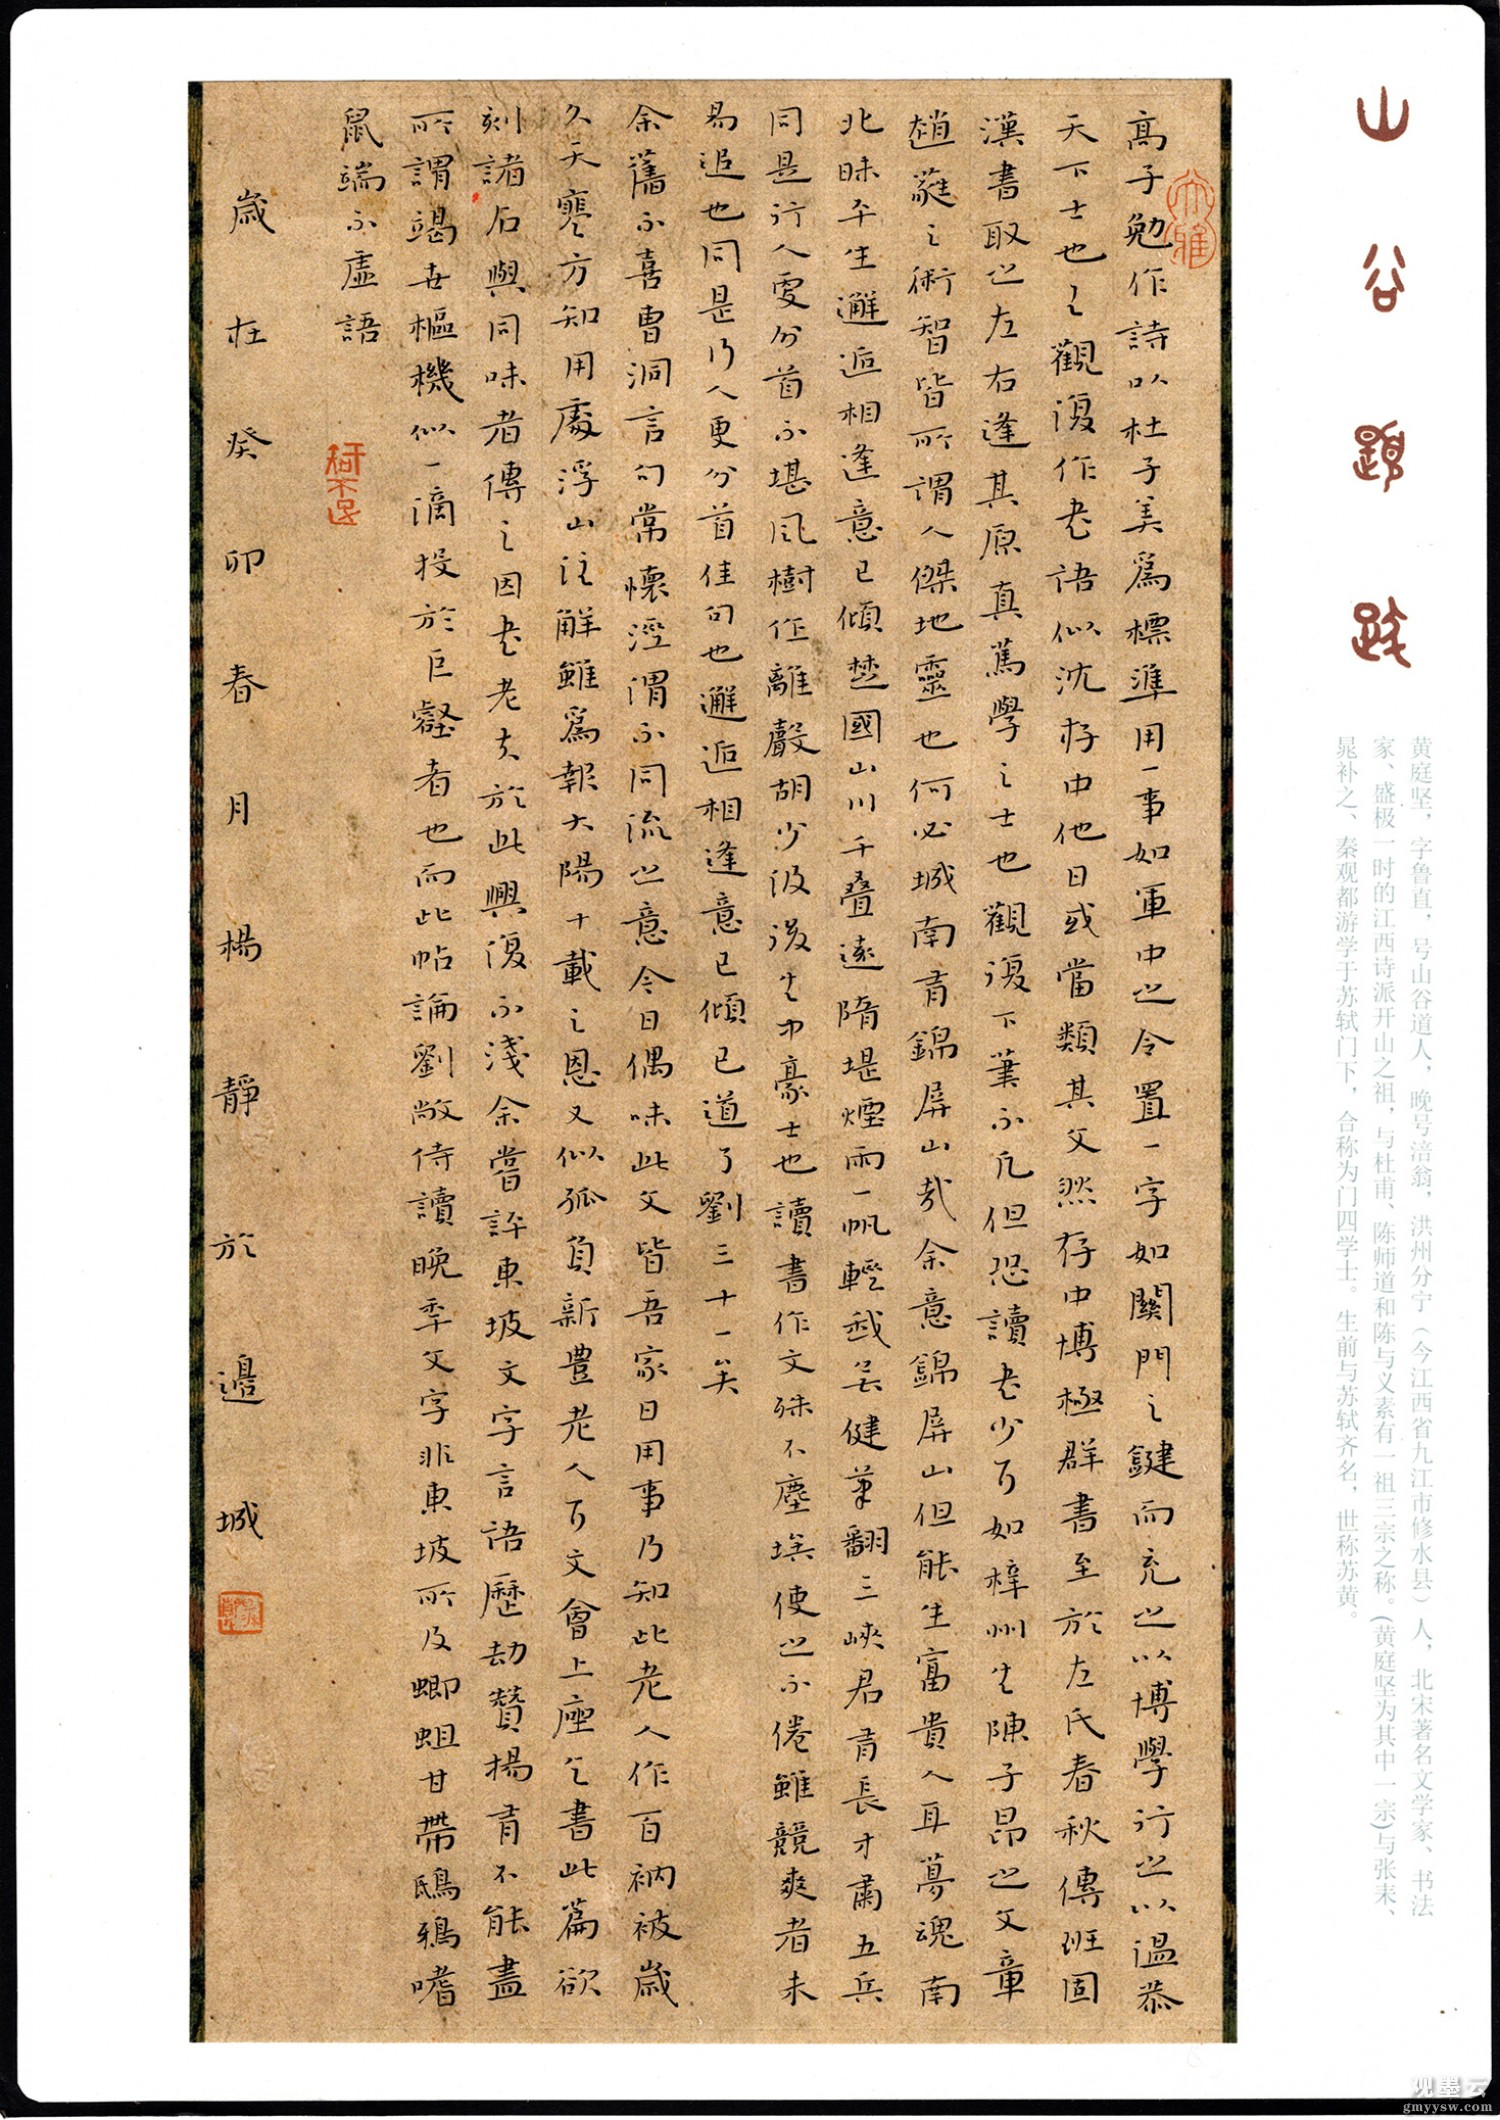 山谷題跋
黄庭坚，字鲁直，号山谷道人，晚号涪翁，洪州分宁（今江西省九江市修水县）人，北宋著名文学家、书法
家、盛极一时的江西诗派开山之祖，与杜甫、陈师道和陈与义素有一祖三宗之称。(黄庭坚为其中一宗)与张耒、
晁补之、秦观都游学于苏轼门下，合称为门四学士。生前与苏轼齐名，世称苏黄。
大雅
高子勉作詩以杜子美爲標準用一事如軍中之令置一字如關門之鍵而充之以博學行之以温恭
天下士也王觀復作書語似沈存中他日或當類其文然存中博極群書至於左氏春秋傳班固
漢書取之左右逢其原真篤學之士也觀復下筆不凡但恐讀書少耳如梓州生陳子昂之文章
趙蕤之術智皆所謂人傑地靈也何必城南有錦屏山哉余意錦屏山但能生富貴人耳夢魂南
北昧平生邂逅相逢意已傾楚國山川千叠遠隋堤煙雨一帆輕我無健筆翻三峽君有長才肅五兵
同是行人更分首不堪風樹作離聲胡少汲後生中豪士也讀書作文殊不塵埃使之不倦雖競爽者未
易追也同是行人更分首佳句也邂逅相逢意已傾已道了劉三十一矣
余舊不喜曹洞言句常懷涇渭不同流之意今日偶味此文皆吾家日用事乃知此老人作百衲被歲
久天寒方知用處浮山注解雖爲報大陽十載之恩又似孤負新豐老人耳文會上座乞書此篇欲
刻諸石與同味者傳之因書老夫於此興復不淺余嘗評東坡文字言語歷劫贊揚有不能盡
所謂竭世樞機似一滴投於巨壑者也而此帖論劉敞侍讀晚年文字非東坡所及蝍蛆甘帶鴟鴉嗜
鼠端不虛語
歲在癸卯春月楊靜於邊城
观墨云
gmyysw.com